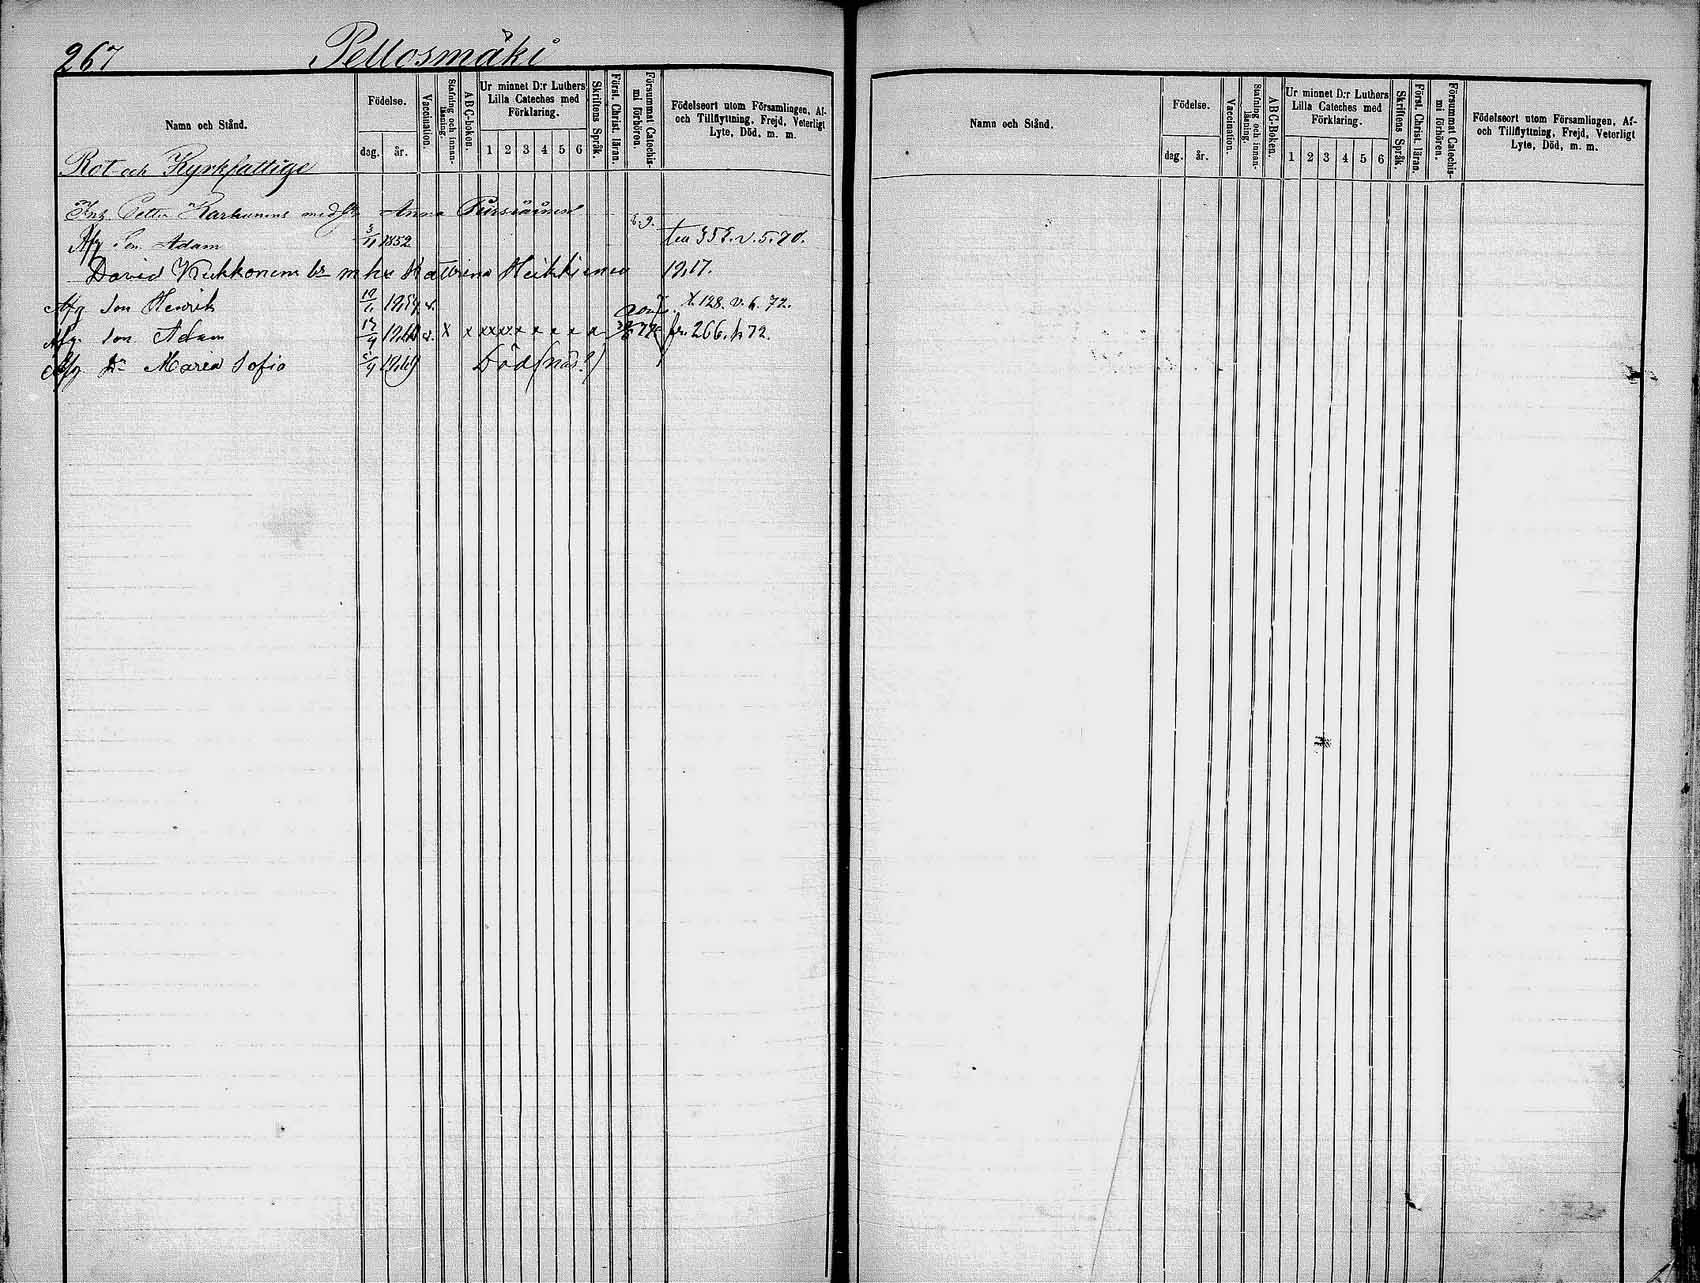 267 Pellosmäki
Namn och Stånd.
Födelse.
dag. år.
Vaccination.
Stafning och innan-läsning.
ABC-boken.
Ur minnet D:r Luthers Lilla Cateches med Förklaring.
1 2 3 4 5 6
Skriftens Språk.
Först. Christ. läran.
Försummat Catechis-mi förhören.
Födelseort utom Församlingen, Af-och Tillflyttning, Frejd, Veterligt Lyte, Död, m. m.
Rot och Kyrkfattige
Petter Karhunens med Anna
Afg Son Adam 3/11 1852 v. 5. 70.
David Kukkonens mhu Katrina Heikkinen
Afg Son Henrik 128. v. 6. 72.
Afg. Son Adam x x x x x x x x x x fr. 266. fr 72.
Afg Dr Maria Sofia Död (när?)
Namn och Stånd.
Födelse.
dag. år.
Vaccination.
Stafning och innan-läsning.
ABC-Boken.
Ur minnet D:r Luthers Lilla Cateches med Förklaring.
1 2 3 4 5 6
Skriftens Språk.
Först. Christ. läran.
Försummat Catechis-mi förhören.
Födelseort utom Församlingen, Af-och Tillflyttning, Frejd, Veterligt Lyte, Död, m. m.